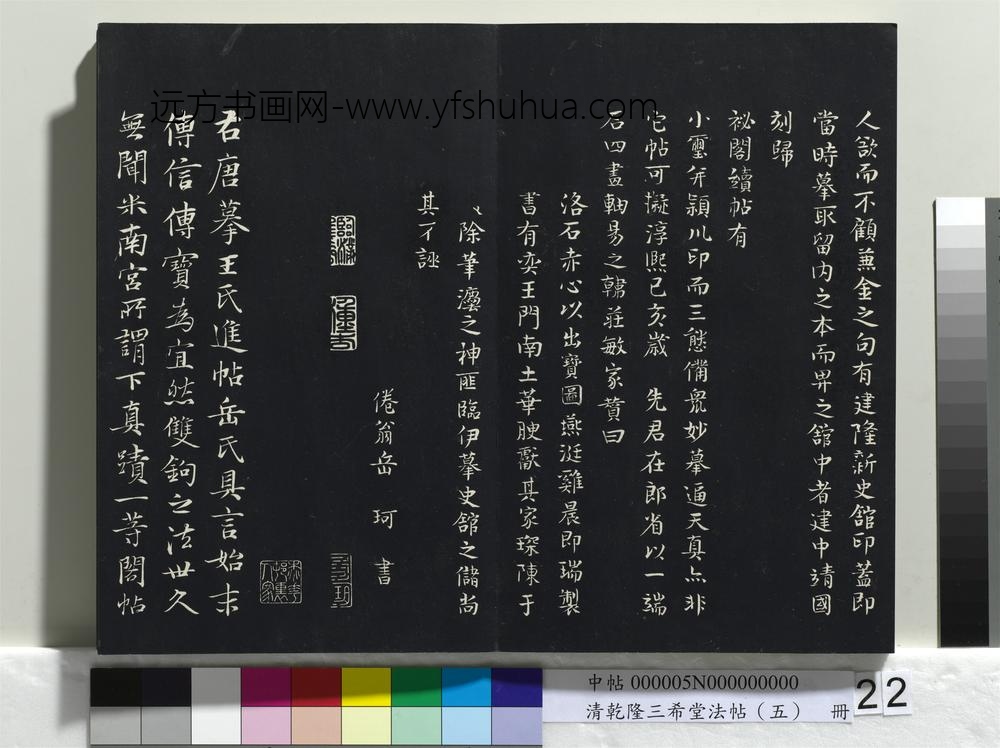 人欲而不顧兼金之句有建隆新史舘印蓋即
當時摹取留内之本而畀之舘中者建中靖國
刻歸
祕閣續帖有
小璽并潁川印而三態備衆妙摹逼天真亦非
它帖可擬淳熙己亥歳 先君在郎省以一端
石四畫軸易之韓莊敏家贊曰
洛石赤心以出寶圖燕涎雞晨即瑞製
書有奕王門南土華腴獻其家琛陳于
除筆瀍之神匪臨伊摹史舘之儲尚
其不誣
倦翁岳 珂 書
右唐摹王氏進帖岳氏具言始末
傳信傳寶為宜然雙鉤之法世久
無聞米南宮所謂下真蹟一等閣帖
远方书画网-www.yfshuhua.com
中帖 000005N000000000
清乾隆三希堂法帖（五） 冊
22